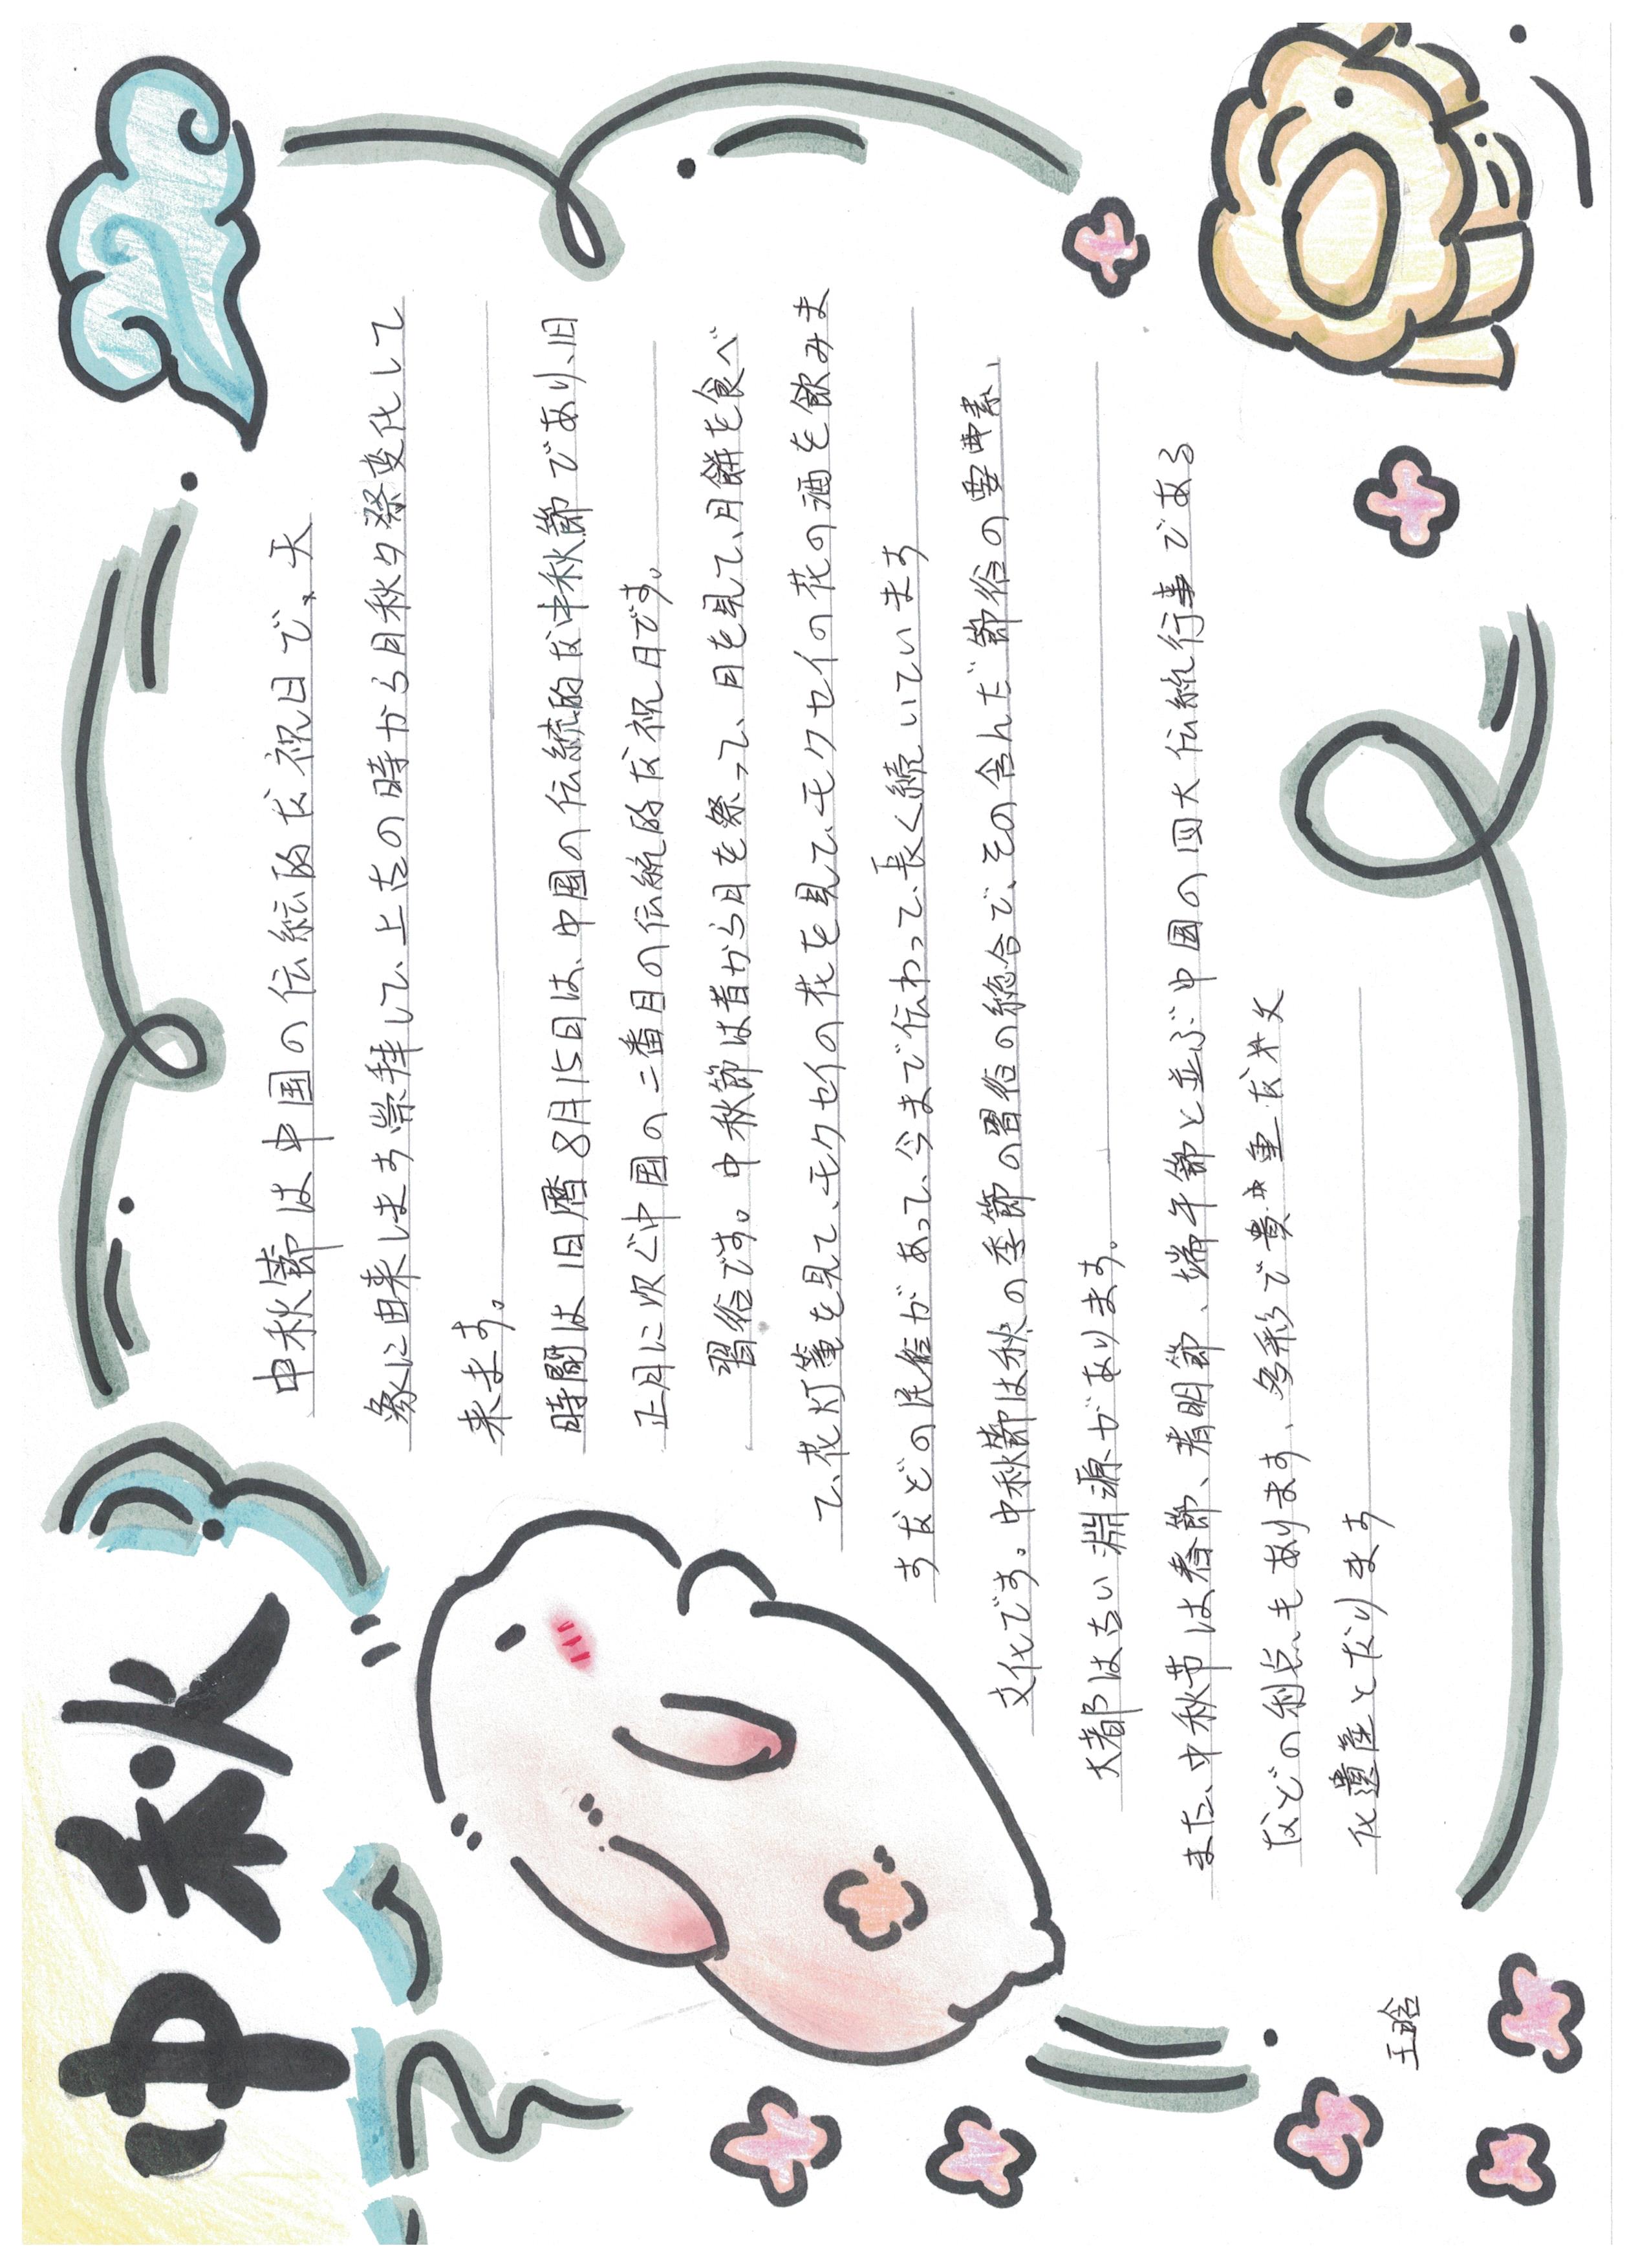 中秋
中秋節は中国の伝統的な祝日で、天
象に由来します崇拝して、上古の時から月秋夕祭変化して
来ます。
時間は旧暦8月15日は、中国の伝統的な中秋節であり、旧
正月に次ぐ中国の二番目の伝統的な祝日です。
習俗です。中秋節は昔から月を祭って、月を見て、月餅を食べ
て、花灯篭を見て、モクセイの花を見て、モクセイの花の酒を飲みま
すなどの民俗があって、今まで伝わって、長く続いています
文化です。中秋節は秋の季節の習俗の総合で、その含んだ節俗の要素、
大都は古い淵源があります。
また、中秋节は春節、清明節、端午節と並ぶ中国の四大伝統行事である
などの利点もあります、多彩で貴重な文
化遺産となります
王晗